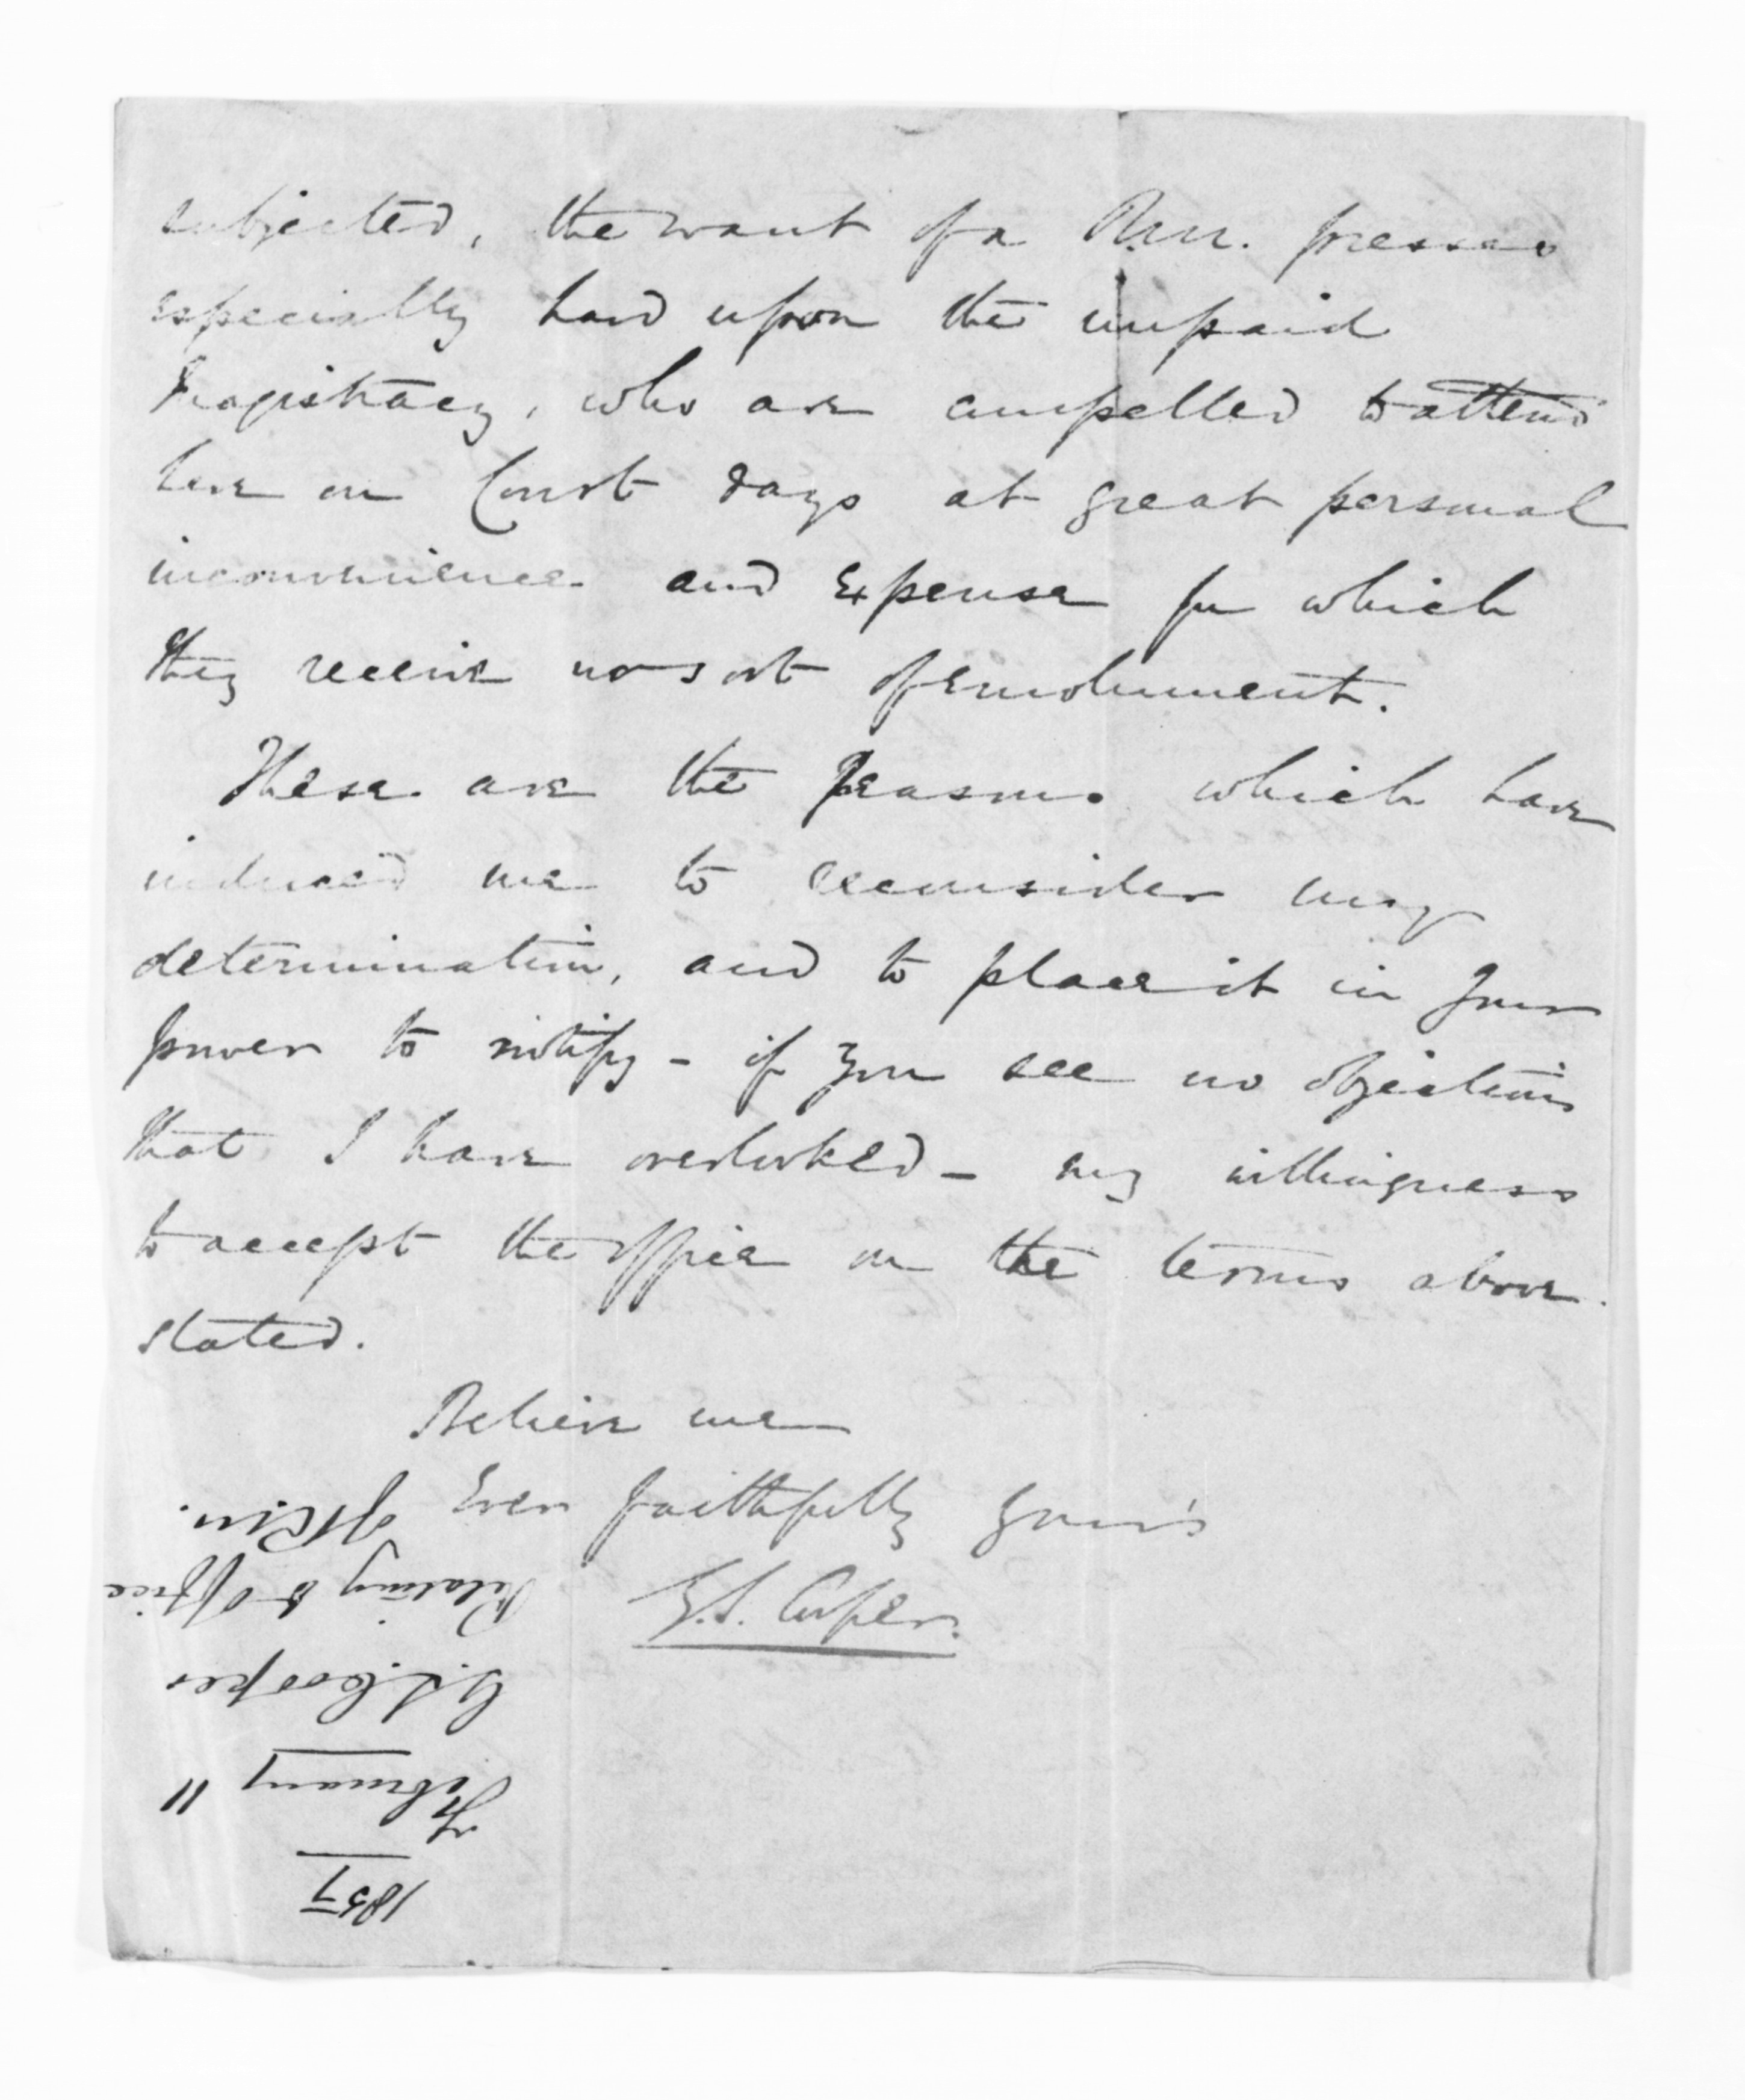 subjected, the want of a R.M. presses
especially hard upon the unpaid
Magistracy, who are compelled to attend
here on Court days at great personal
inconvenience and expense for which
they receive no sort of emolument.
These are the reasons which have
induced me to reconsider my
determination, and to place it in your
power to notify - if you see no objections
that I have overlooked - my willingness
to accept the office on the terms above
stated.
Believe me
Ever faithfully your's
G.S. Cooper.
1857
February 11
G.S. Cooper
Relating to office
of R.M.